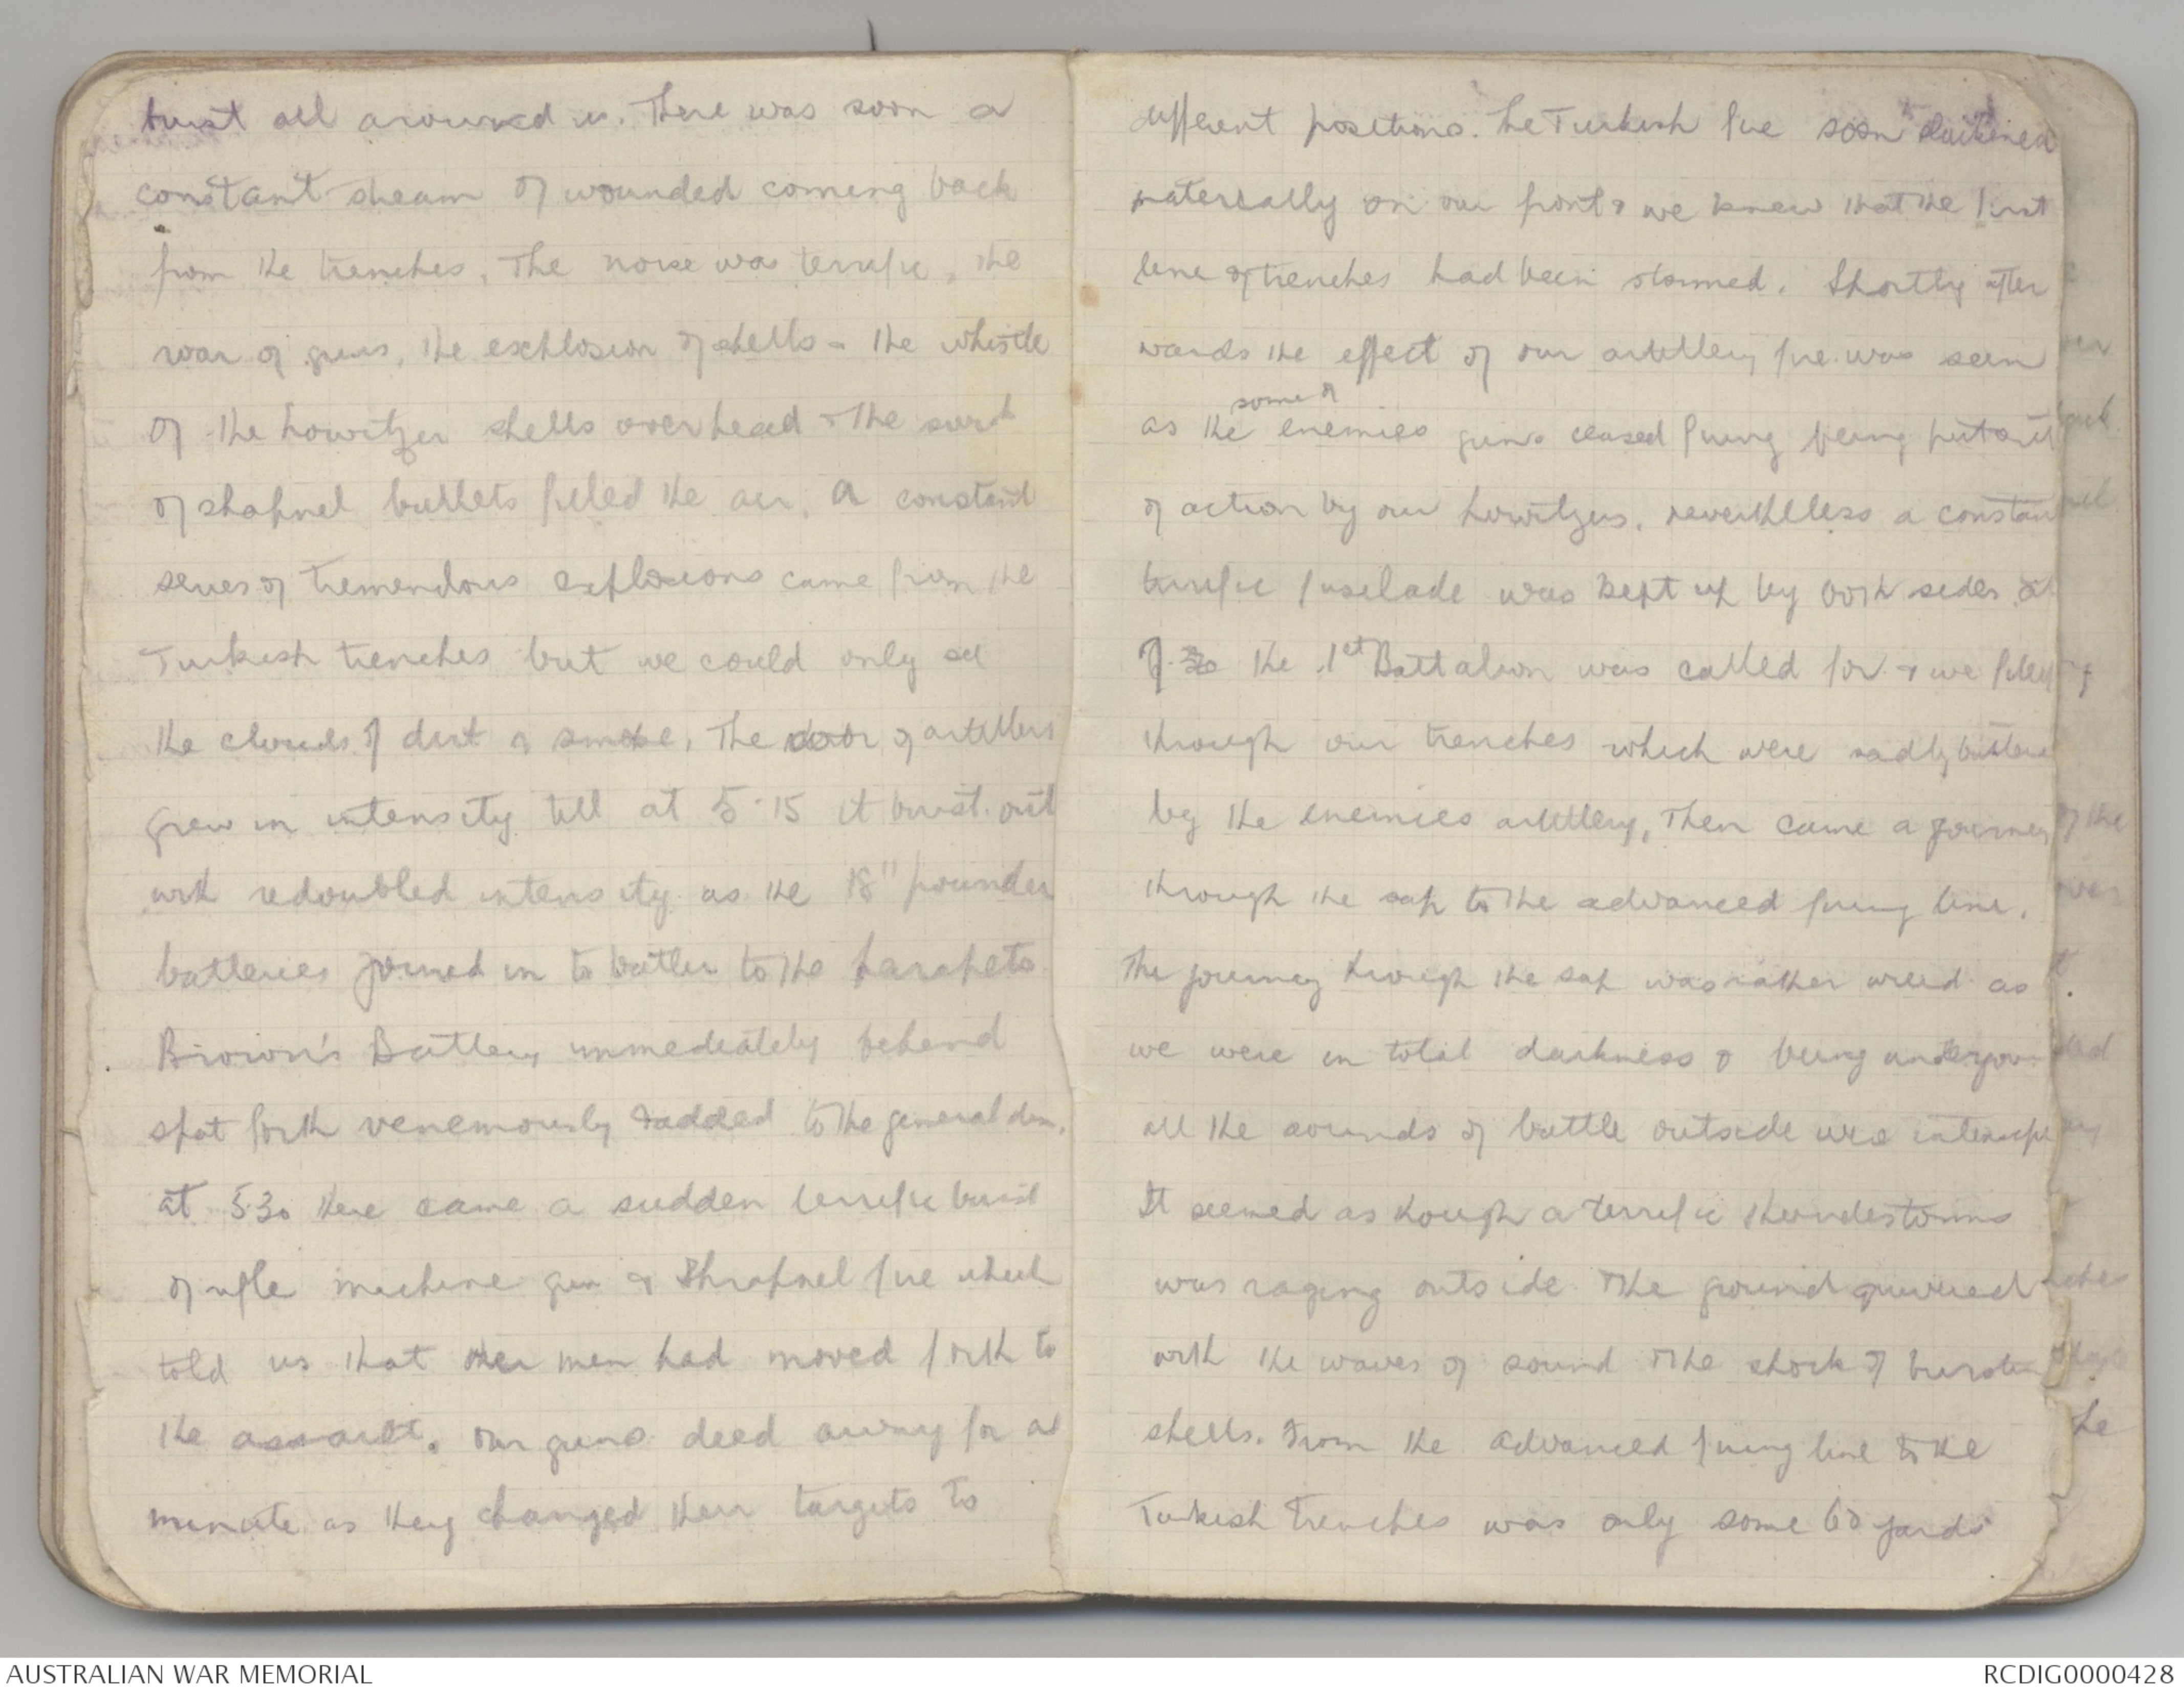 burst all around us. There was soon a
constant stream of wounded coming back
from the trenches. The noise was terrific, the
roar of guns, the explosion of shells & the whistle
of the howitzer shells overhead & the swish
of shapnel bullets filled the air. A constant
series of tremendous explosions came from the
Turkish trenches but we could only see
the clouds of dirt & smoke. The roar of artillery
grew in intensity till at 5.15 it burst out
with redoubled intensity as the 18" pounder
batteries joined in to batter to the parapets
Brown's Battery immediately behind
spat forth venemously & added to the general din.
at 5.30 there came a sudden terrific burst
of rifle machine gun & Shrapnel fire which
told us that our men had moved forth to
the assault. Our guns died away for a
minute as they changed their targets to
different positions. The Turkish fire soon slackened
materially on our front & we knew that the first
line of trenches had been stormed. Shortly after
wards the effect of our artillery fire was seen
some of
as the enemies guns ceased firing being put out
of action by our howitzers. nevertheless a constant
terrific fusilade was kept up by both sides. at
the 1st Battalion was called for & we filed
through our trenches which were sadly battered
by the enemies artillery. Then came a journey
through the sap to the advanced firing line.
The journey through the sap was rather weird as
we were in total darkness & being undergrou
all the sounds of battle outside were
It seemed as though a terrific thunderstorms
was raging outside. The ground quivered
with the waves of sound & the shock of bursting
shells. From the advanced firing line to the
Turkish Trenches was only some 60 yards
of the
he
AUSTRALIAN WAR MEMORIAL
RCDIG0000428